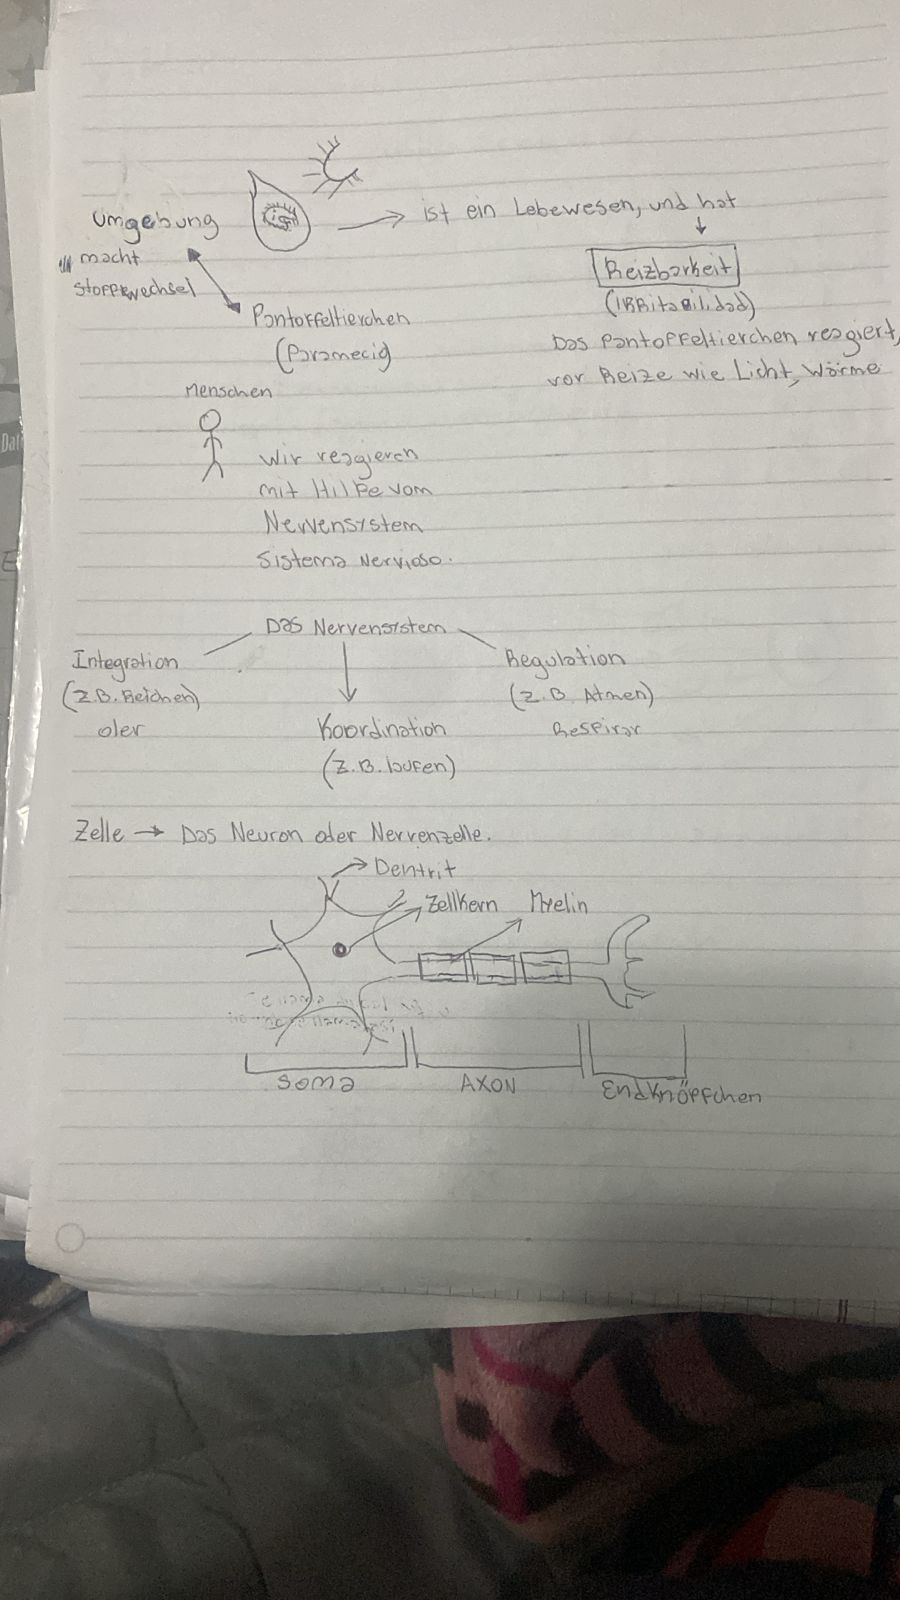 Umgebung
macht
stoffwechsel
ist ein Lebewesen, und hat
Reizbarkeit
(IRRitabilidad)
Das Pantoffeltierchen reagiert,
vor Reize wie Licht, Wärme
Pantoffeltierchen
(Paramecia
Menschen
Wir reagieren
mit Hilfe vom
Nervensystem
Sistema Nervioso.
Das Nervensistem
Integration
(z.B. Reichen)
oler
Koordination
(z.B. laufen)
Regulation
(z.B Atmen)
Respirar
Zelle → Das Neuron oder Nervenzelle.
Dentrit
Zellkern
Myelin
Soma
AXON
Endknöpfchen